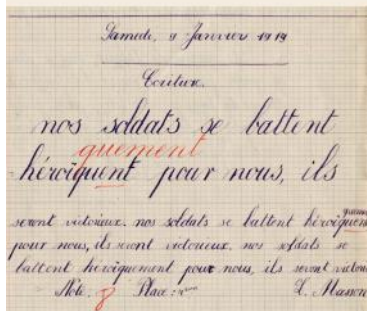 Samedi, 9 Janvier 1919
Ecriture.
nos soldats se battent
quement
héroïquent pour nous, ils
seront victorieux. nos soldats se battent héroïquement
pour nous, ils seront victorieux. nos soldats se
battent héroïquement pour nous, ils seront victorieux
Note. 8 Place : Z. Masson